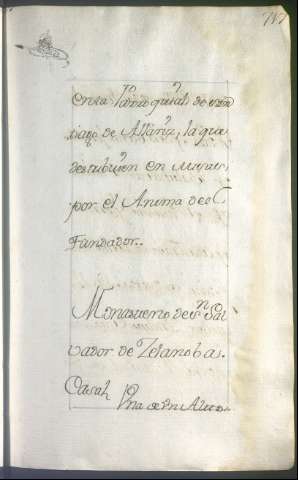 en la Parroquial de San
tiago de Allariz, la que
destribuien en Misas,
por el Anima del
Fundador.
Monasterio de Sn Sal
vador de Zelanoba.
Casal. Una de Dn